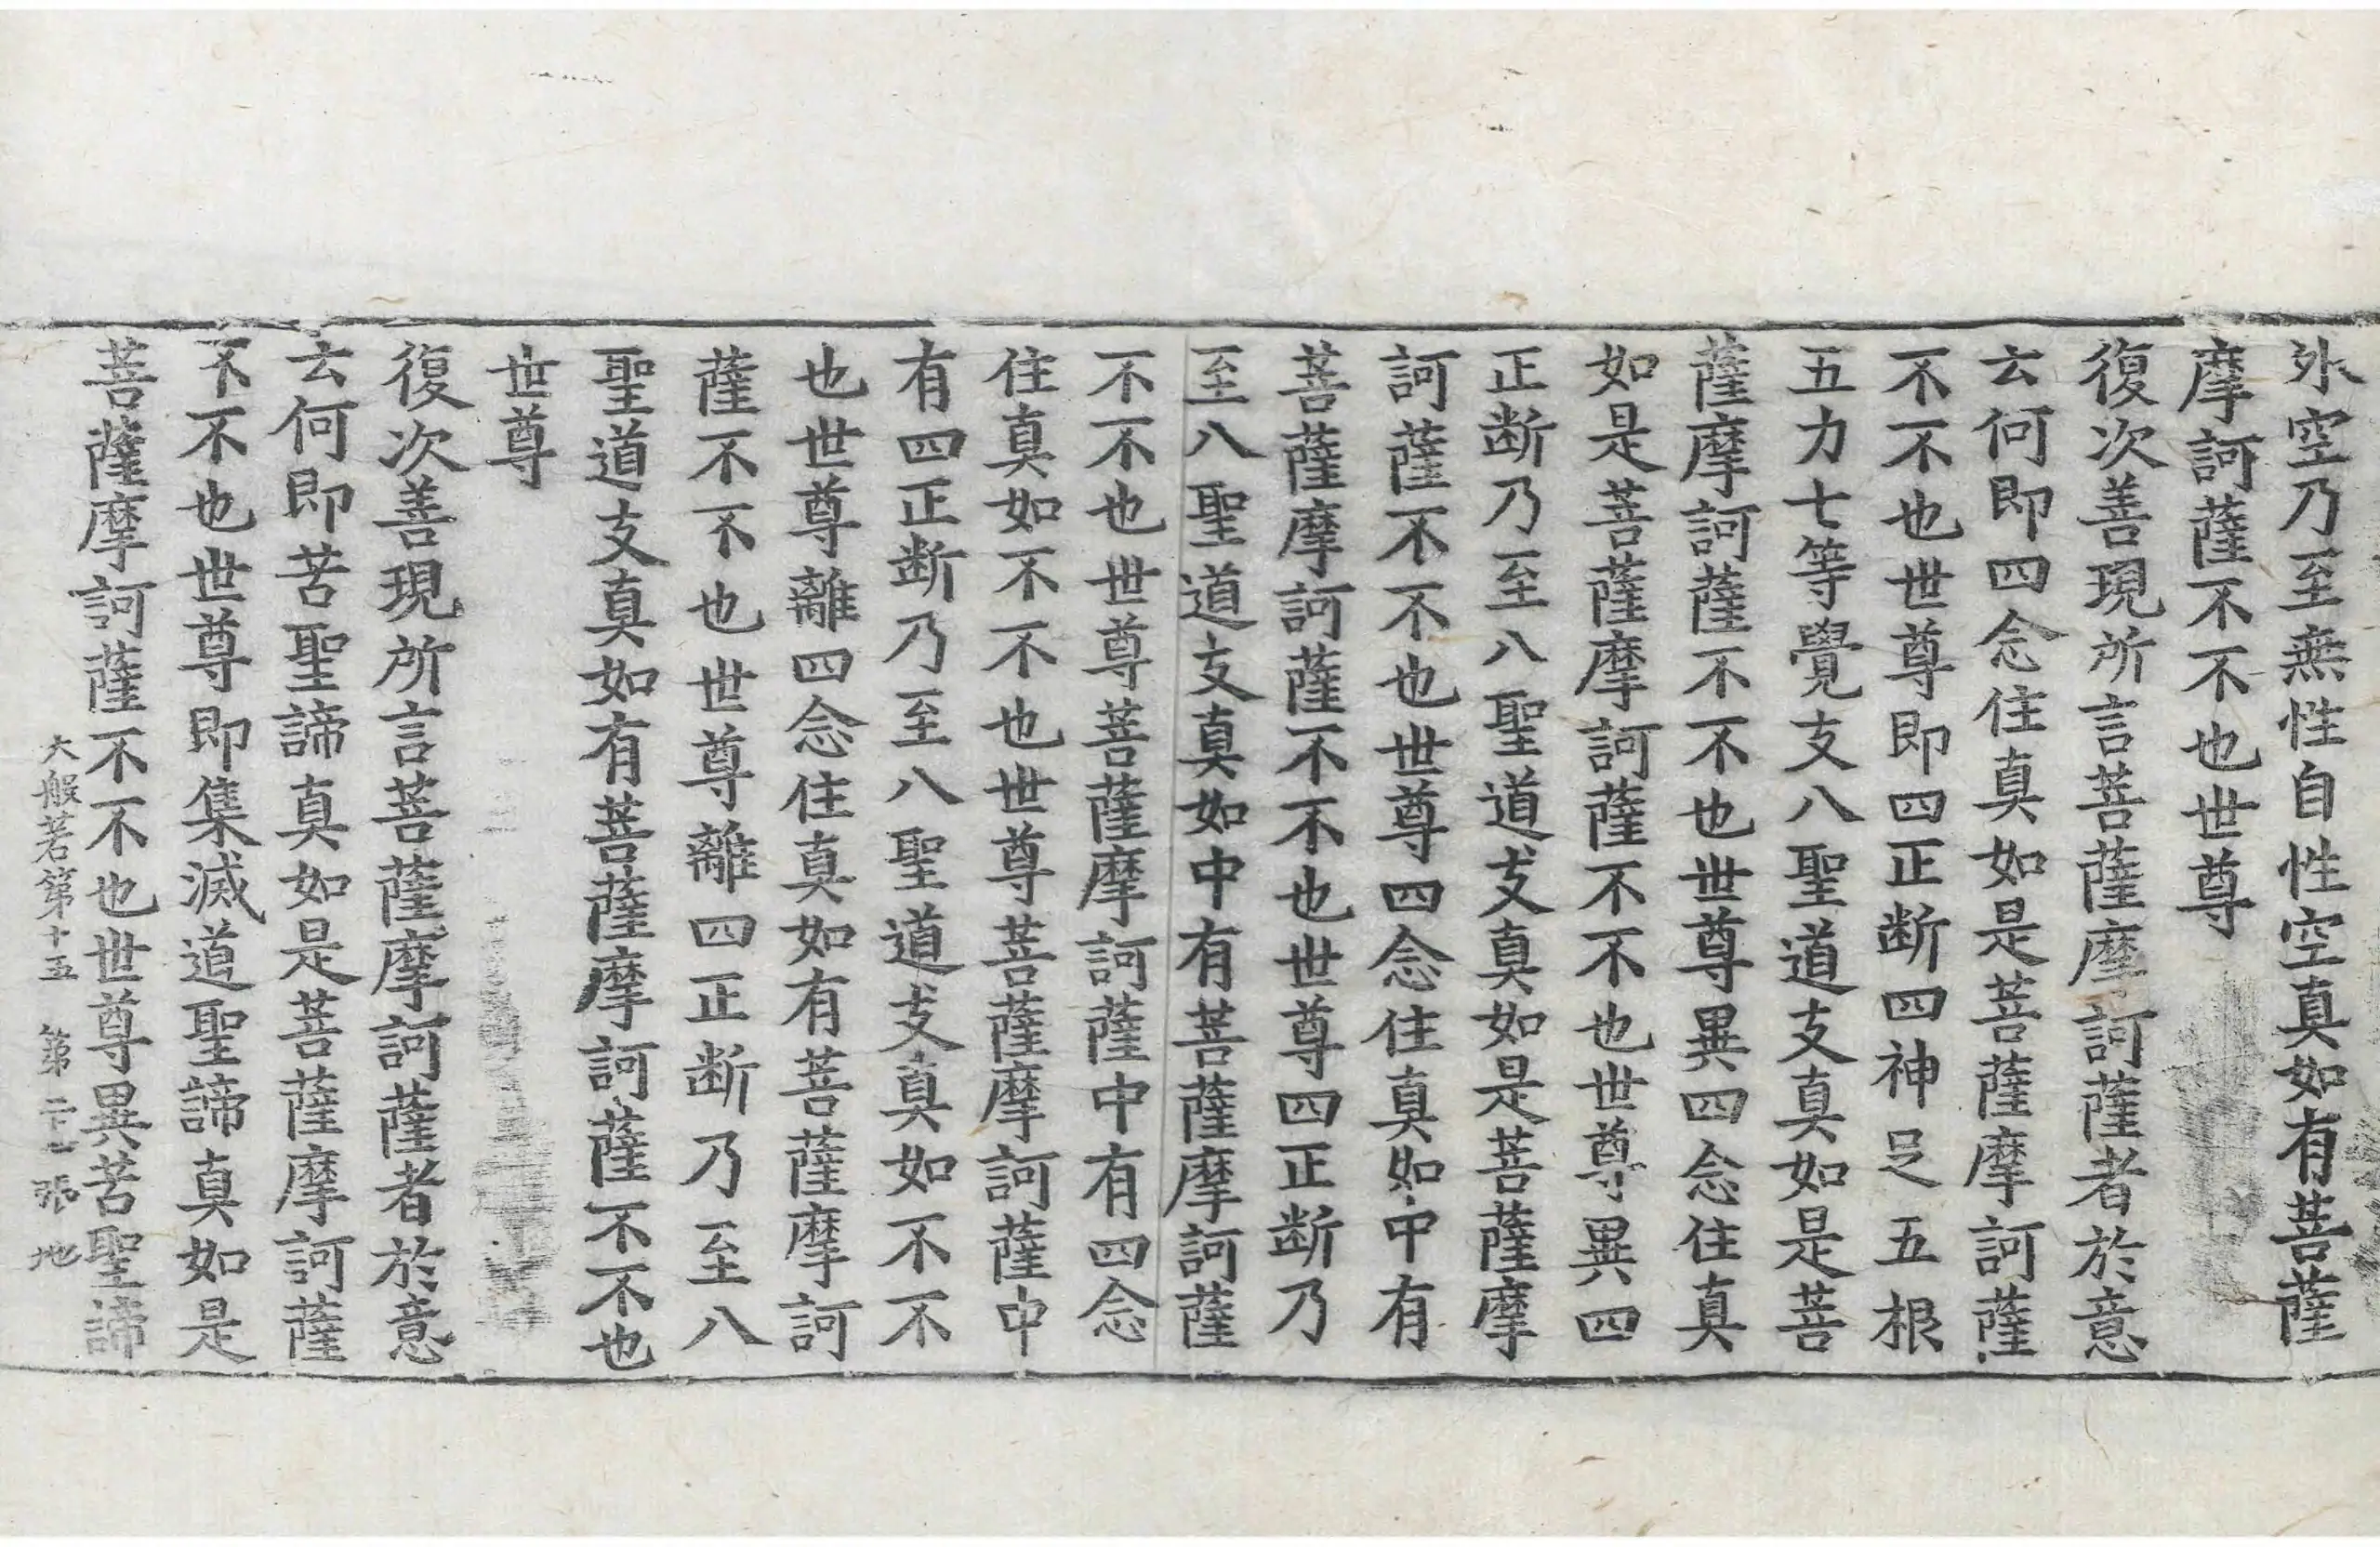 外空乃至無性自性空真如有菩薩
摩訶薩不不也世尊
復次善現所言菩薩摩訶薩者於意
云何即四念住真如是菩薩摩訶薩
不不也世尊即四正断四神足五根
五力七等覺支八聖道支真如是菩
薩摩訶薩不不也世尊異四念住真
如是菩薩摩訶薩不不也世尊異四
正断乃至八聖道支真如是菩薩摩
訶薩不不也世尊四念住真如中有
菩薩摩訶薩不不也世尊四正断乃
至八聖道支真如中有菩薩摩訶薩
不不也世尊菩薩摩訶薩中有四念
住真如不不也世尊菩薩摩訶薩中
有四正断乃至八聖道支真如不不
也世尊離四念住真如有菩薩摩訶
薩不不也世尊離四正断乃至八
聖道支真如有菩薩摩訶薩不不也
世尊
復次善現所言菩薩摩訶薩者於意
云何即苦聖諦真如是菩薩摩訶薩
不不也世尊即集滅道聖諦真如是
菩薩摩訶薩不不也世尊異苦聖諦
大般若第十五 第二十七張 地